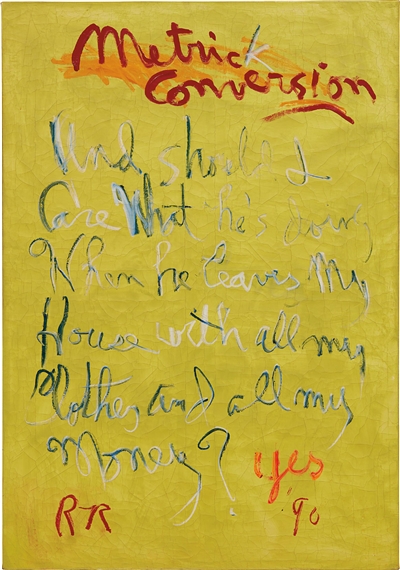 Metrick
Conversion
And should I
Care What he's doing
When he leaves My
House with all my
Clothes and all my
Money? yes
RR '90